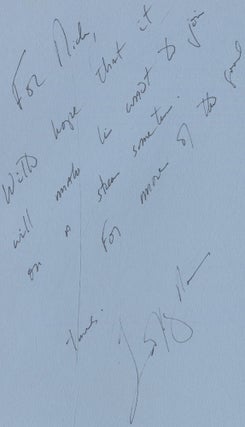 For Nick,
With hope that it
will make him want to join
on a stream sometime.
For more of the good
times.